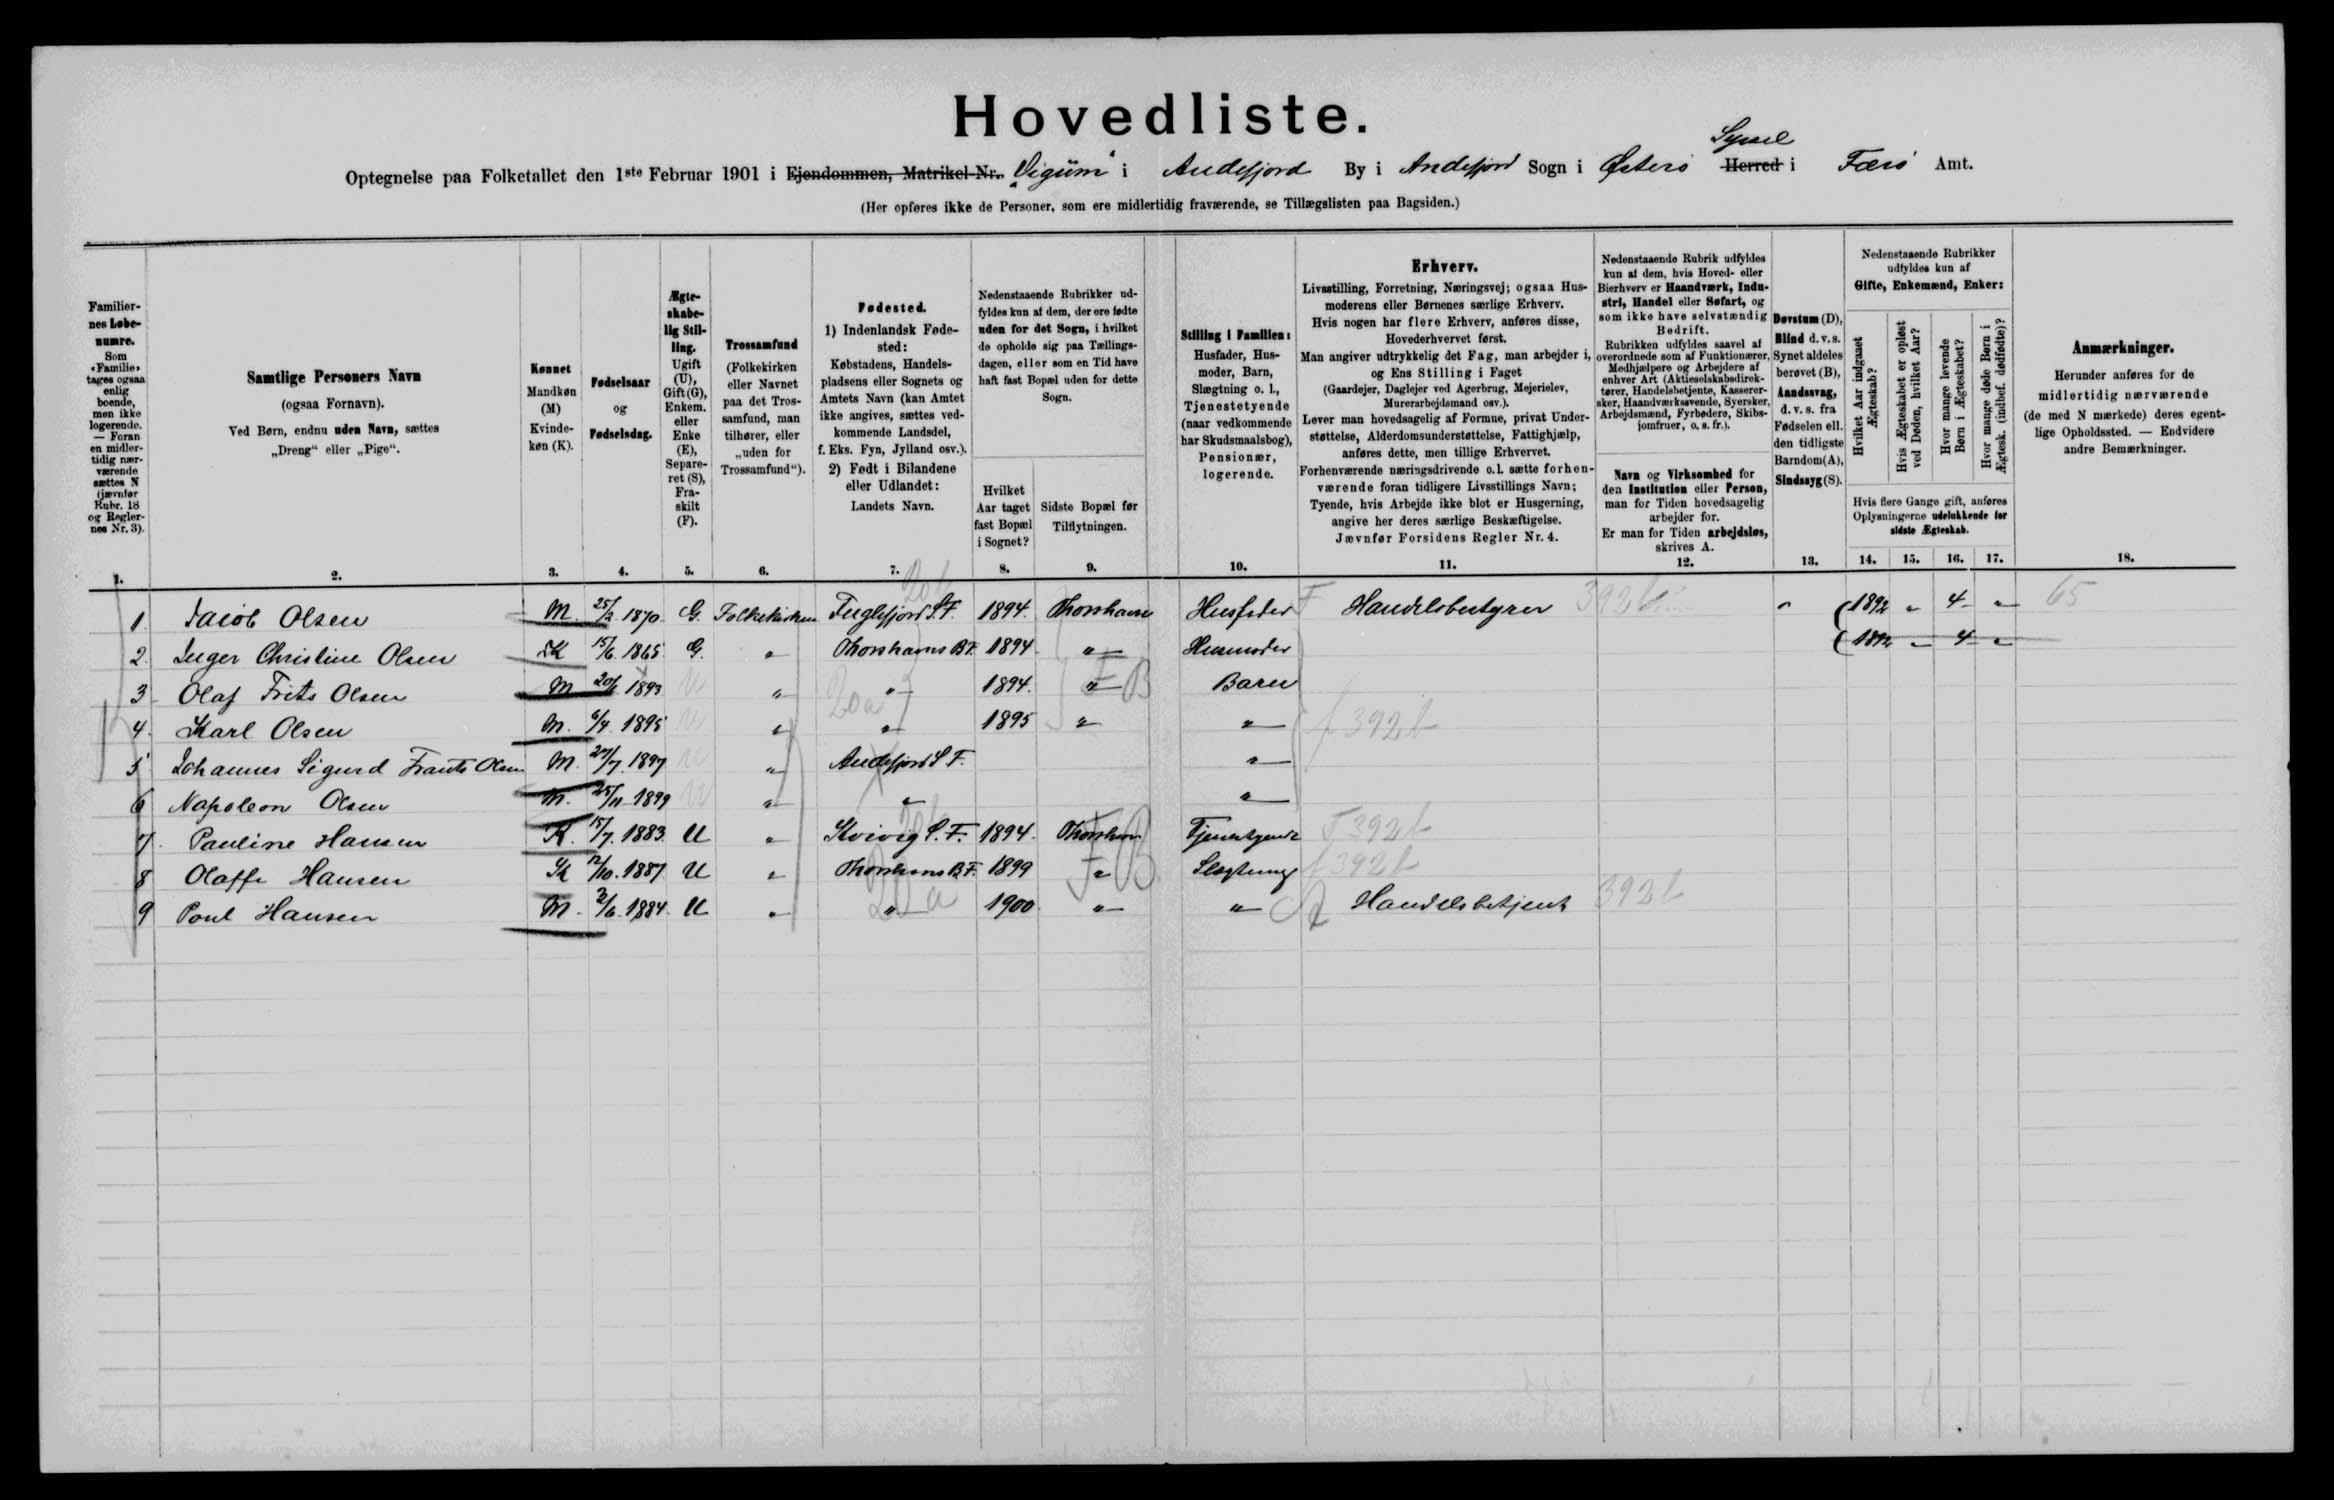 Hovedliste.
Syssel
Optegnelse paa Folketallet den 1ste Februar 1901 i Ejendommen, Matrikel-Nr. "Vigum" i Andefjord By i Andefjord Sogn i Østerø Herred i Færø Amt.
(Her opføres ikke de Personer, som ere midlertidig fraværende, se Tillægslisten paa Bagsiden.)
Familiernes Løbenumre. Som «Familie» tages ogsaa enlig boende, men ikke logerende. — Foran en midlertidig nærværende sættes N (jævnfør Rubr. 18 og Regler-nes Nr. 3).
Samtlige Personers Navn
(ogsaa Fornavn).
Ved Børn, endnu uden Navn, sættes
„Dreng“ eller „Pige“.
Kønnet
Mandkøn (M)
Kvindekøn (K).
Fødselsaar
og
Fødselsdag.
Ægteskabelig Stilling. Ugift (U), Gift (G), Enkem. eller Enke (E), Separeret (S), Fraskilt (F).
Trossamfund
(Folkekirken eller Navnet paa det Trossamfund, man tilhører, eller „uden for Trossamfund“).
Fødested.
1) Indenlandsk Fødested:
Købstadens, Handelspladsens eller Sognets og Amtets Navn (kan Amtet ikke angives, sættes vedkommende Landsdel, f. Eks. Fyn, Jylland osv.).
2) Født i Bilandene eller Udlandet:
Landets Navn.
Nedenstaaende Rubrikker udfyldes kun af dem, der ere fødte uden for det Sogn, i hvilket de opholde sig paa Tællingsdagen, eller som en Tid have haft fast Bopæl uden for dette Sogn.
Hvilket Aar taget fast Bopæl i Sognet?
Sidste Bopæl før Tilflytningen.
Stilling i Familien:
Husfader, Husmoder, Barn, Slægtning o. l., Tjenestetyende (naar vedkommende har Skudsmaalsbog), Pensionær, logerende.
Erhverv.
Livsstilling, Forretning, Næringsvej; ogsaa Husmoderens eller Børnenes særlige Erhverv.
Hvis nogen har flere Erhverv, anføres disse, Hovederhvervet først.
Man angiver udtrykkelig det Fag, man arbejder i, og Ens Stilling i Faget
(Gaardejer, Daglejer ved Agerbrug, Mejerielev, Murerarbejdsmand osv.).
Lever man hovedsagelig af Formue, privat Understøttelse, Alderdomsunderstøttelse, Fattighjælp, anføres dette, men tillige Erhvervet.
Forhenværende næringsdrivende o. l. sætte forhenværende foran tidligere Livsstillings Navn;
Tyende, hvis Arbejde ikke blot er Husgerning, angive her deres særlige Beskæftigelse.
Jævnfør Forsidens Regler Nr. 4.
Nedenstaaende Rubrik udfyldes kun af dem, hvis Hoved- eller Bierhverv er Haandværk, Industri, Handel eller Søfart, og som ikke have selvstændig Bedrift.
Rubrikken udfyldes saavel af overordnede som af Funktionærer, Medhjælpere og Arbejdere af enhver Art (Aktieselskabsdirektører, Handelsbetjente, Kasserersker, Haandværkssvende, Syersker, Arbejdsmænd, Fyrbødere, Skibsjomfruer, o. s. fr.).
Navn og Virksomhed for den Institution eller Person, man for Tiden hovedsagelig arbejder for.
Er man for Tiden arbejdsløs, skrives A.
Døvstum (D), Blind d. v. s. Synet aldeles berøvet (B), Aandssvag, d. v. s. fra Fødselen ell. den tidligste Barndom (A), Sindssyg (S).
Nedenstaaende Rubrikker udfyldes kun af
Gifte, Enkemænd, Enker:
Hvilket Aar indgaaet Ægteskab?
Hvis Ægteskabet er opløst ved Døden, hvilket Aar?
Hvor mange levende Børn i Ægteskabet?
Hvor mange døde Børn i Ægtesk. (indbef. dødfødte)?
Hvis flere Gange gift, anføres Oplysningerne udelukkende for sidste Ægteskab.
Anmærkninger.
Herunder anføres for de midlertidig nærværende (de med N mærkede) deres egentlige Opholdssted. — Endvidere andre Bemærkninger.
1. 2. 3. 4. 5. 6. 7. 8. 9. 10. 11. 12. 13. 14. 15. 16. 17. 18.
1. Jacob Olsen M. 25/2 1870 G. Folkekirken Fuglefjord S. F. 1894. Thorshavn Husfader F Handelsbestyrer 392 1892 " 4 " 65
2. Inger Christine Olsen K 15/6 1865 G. " Thorshavns B F. 1894 " Husmoder 1892 " 4 "
3 Olaf Frits Olsen M 20/6 1893 U " " 1894. " Barn
4. Karl Olsen M. 6/4 1895 U " " 1895 " " f 392 b
5 Johannes Sigurd Frants Olsen M. 27/7. 1897 U " Andefjord S F. "
6 Napoleon Olsen M. 25/11 1899 U " " "
7. Pauline Hansen K. 15/7. 1883 U " Kvivig S. F. 1894. Thorshavn Tjenestyende F 392 b
8 Olaffe Hansen K 12/10. 1887 U " Thorshavns B. F. 1899 " Slægtning f 392 b
9 Poul Hansen M. 2/6. 1884. U " " 1900 " " Handelsbetjent 392 b